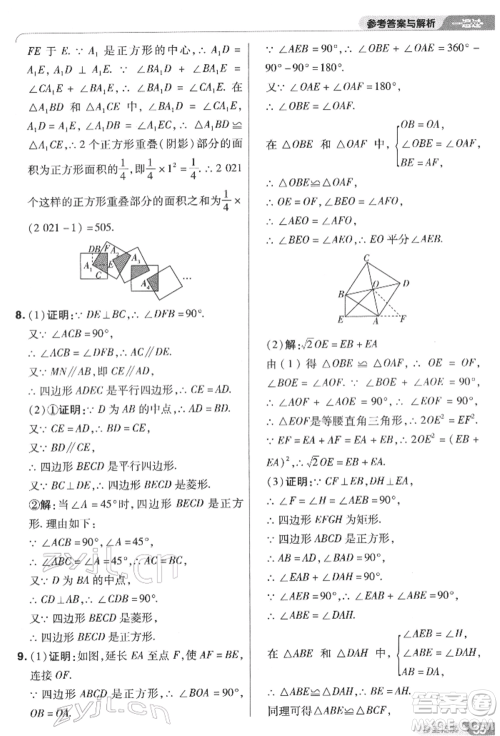 参考答案与解析
一遍过
FE于E. ∵ A₁是正方形的中心,∴ A₁D =
A₁E, A₁D ⊥ A₁E, ∴ ∠BA₁D + ∠BA₁E =
∠GA₁E + ∠BA₁E, ∴ ∠BA₁D = ∠GA₁E. 在
△A₁BD 和 △A₁GE 中,
∴ △A₁BD ≌ △A₁GE, ∴ 2个正方形重叠(阴影)部分的面
积为正方形面积的1/4,即1/4×1²=1/4. ∴ 2 021
个这样的正方形重叠部分的面积之和为1/4×
(2 021-1)=505.
D B F
A₁ E A₂
C
8. (1)证明:∵ DE⊥BC, ∴ ∠DFB=90°.
又∵ ∠ACB=90°,
∴ ∠ACB=∠DFB, ∴ AC∥DE.
又∵ MN∥AB,即CE∥AD,
∴ 四边形ADEC是平行四边形,∴ CE=AD.
(2)①证明:∵ D为AB的中点,∴ AD=BD.
又∵ CE=AD, ∴ BD=CE.
又∵ BD∥CE,
∴ 四边形BECD是平行四边形.
又∵ BC⊥DE, ∴ 四边形BECD是菱形.
②解:当∠A=45°时,四边形BECD是正方
形.理由如下:
∵ ∠ACB=90°, ∠A=45°,
∴ ∠ABC=∠A=45°, ∴ AC=BC.
又∵ D为BA的中点,
∴ CD⊥AB, ∴ ∠CDB=90°.
又∵ 四边形BECD是菱形,
∴ 四边形BECD是正方形.
9. (1)证明:如图,延长EA至点F,使AF=BE,
连接OF.
∵ 四边形ABCD是正方形,∴ ∠BOA=90°,
OB=OA.
∵ ∠AEB=90°, ∴ ∠OBE+∠OAE=360°-
90°-90°=180°.
又∵ ∠OAE+∠OAF=180°,
∴ ∠OBE=∠OAF.
在△OBE和△OAF中,
OB=OA,
∠OBE=∠OAF,
BE=AF,
∴ △OBE≌△OAF,
∴ OE=OF, ∠BEO=∠AFO,
∴ ∠AEO=∠AFO,
∴ ∠BEO=∠AEO, ∴ EO平分∠AEB.
C
D
B O
E A F
(2)解:√2OE=EB+EA.
由(1)得△OBE≌△OAF, ∴ OE=OF,
∠BOE=∠AOF. ∵ ∠BOE+∠AOE=90°,
∴ ∠AOF+∠AOE=90°, ∴ ∠EOF=90°,
∴ △EOF是等腰直角三角形,∴ 2OE²=EF².
∵ EF=EA+AF=EA+EB, ∴ 2OE²=(EB+
EA)², ∴ √2OE=EB+EA.
(3)证明:∵ CF⊥EB, DH⊥EA,
∴ ∠F=∠H=∠AEB=90°,
∴ 四边形EFGH为矩形.
∵ 四边形ABCD是正方形,
∴ ∠DAB=90°, AB=AD,
∴ ∠EAB+∠DAH=90°.
又∵ ∠EAB+∠ABE=90°,
∴ ∠ABE=∠DAH.
在△ABE和△DAH中,
∠AEB=∠H,
∠ABE=∠DAH,
AB=DA,
∴ △ABE≌△DAH,
∴ BE=AH.
同理可得△ABE≌△BCF,
zyjl.cn